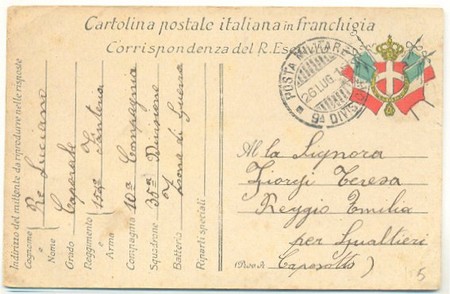 Cartolina postale italiana in franchigia
Corrispondenza del R. Eser
POSTA MILITARE
26 LUG. 1
Indirizzo del mittente da riprodurre nelle risposte
Cognome Re Luciano
Nome
Grado Caporale
Reggimento Fanteria
e
Arma
Compagnia 10ª Compagnia
Squadrone 35ª Divisione
Batteria Zona di Guerra
Riparti speciali
Alla Signora
Giorgi Teresa
Reggio Emilia
per Gualtieri
Caposotto)
5